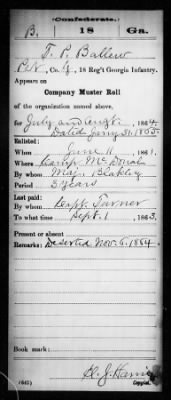 Confederate.
B. 18 Ga.
T. P. Ballew
Pvt, Co. , 18 Reg't Georgia Infantry.
Appears on
Company Muster Roll
of the organization named above,
for July and Augt, 1864.
Dated Jany 31, 1865
Enlisted:
When June 11, 1861.
Where Camp McDonald
By whom Maj. Blakley
Period 3 years
Last paid:
By whom Capt. Turner
To what time Sept. 1, 1863.
Present or absent
Remarks: Deserted Nov. 6, 1864.
Book mark:
Copyist.